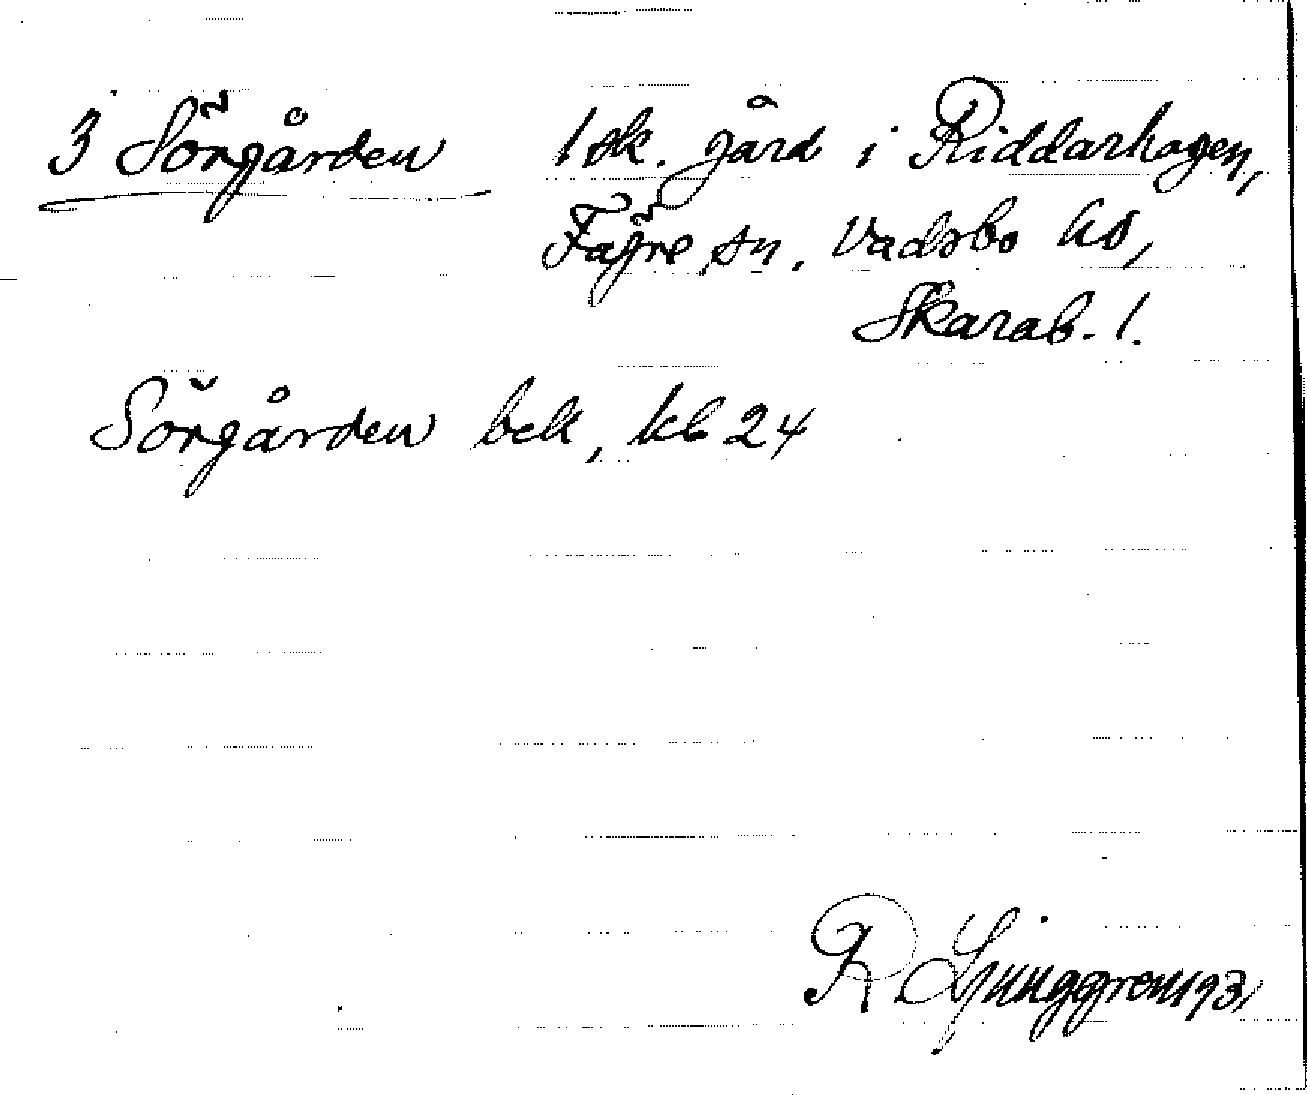 3 Sörgården 1 sk. gård i Riddarhagen,
Fägre sn, Vadsbo hd,
Skarab. l.
Sörgården bek, kb 24
R Ljunggren 1931